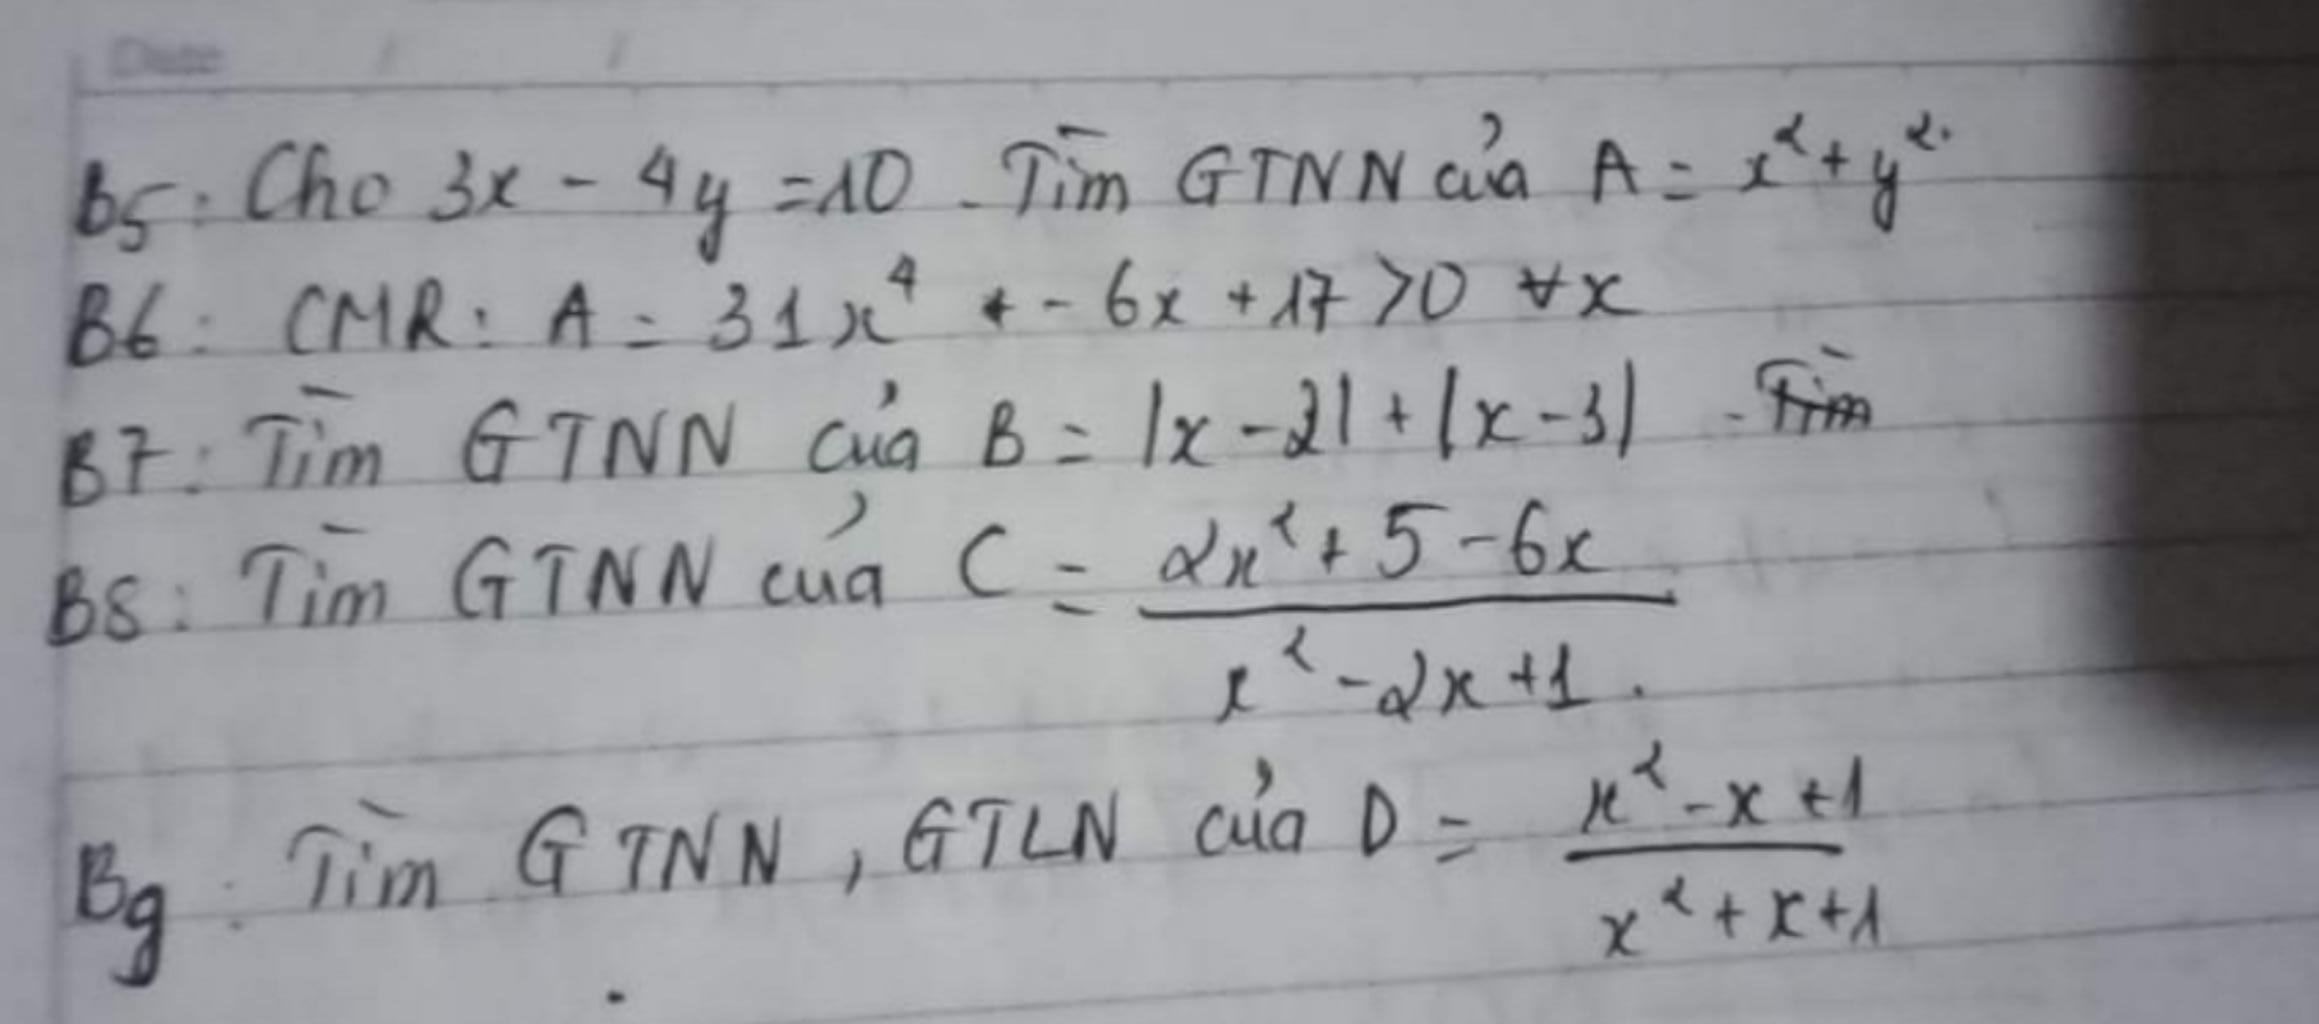 Date / /
B5: Cho 3x - 4y = 10 - Tìm GTNN của A = x² + y².
B6: CMR: A = 31x⁴ + - 6x + 17 > 0 ∀x
B7: Tìm GTNN của B = |x - 2| + |x - 3| - Tìm
B8: Tìm GTNN của C = (2x² + 5 - 6x) / (x² - 2x + 1).
B9: Tìm GTNN, GTLN của D = (x² - x + 1) / (x² + x + 1)